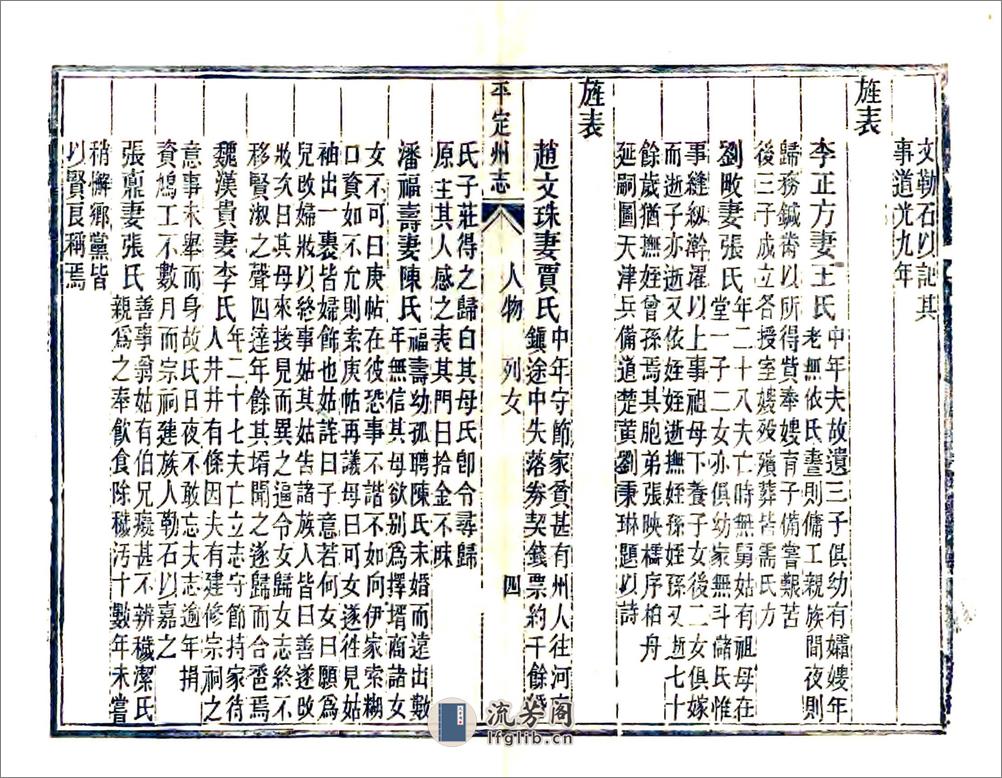 文勒石以記其
事道光九年
旌表
李正方妻王氏中年夫故遺三子俱幼有孀嫂年
老無依氏晝則傭工親族間夜則
歸務鍼黹以所得貲奉嫂育子備嘗艱苦
後三子成立各授室嫂歿殯葬皆需氏方
劉畋妻張氏年二十八夫亡時無舅姑有祖母在
堂一子二女亦俱幼家無斗儲氏惟
事縫紉澣濯以上事祖母下養子女後二女俱嫁
而逝子亦逝又依姪姪逝撫姪孫姪孫又逝七十
餘歲猶撫姪曾孫焉其胞弟張映橋序柏舟
延嗣圖天津兵備道楚黃劉秉琳題以詩
旌表
趙文珠妻賈氏中年守節家貧甚有州人往河南
鎮途中失落券契錢票約千餘緡
平定州志
人物 列女
四
氏子莊得之歸白其母氏卽令尋歸
原主其人感之表其門曰拾金不昧
潘福壽妻陳氏福壽幼孤聘陳氏未婚而遠出數
年無信其母欲别爲擇壻商諸女
女不可曰庚帖在彼恐事不諧不如向伊家索糊
口資如不允則索庚帖再議母曰可女遂徃見姑
袖出一裹皆婦飾也姑詫曰子意若何女曰願爲
兒改婦妝以終事姑其姑告諸族人皆曰善遂改
妝次日其母來接見而異之逼令女歸女志終不
移賢淑之聲四達年餘其壻聞之遂歸而合巹焉
魏漢貴妻李氏年二十七夫亡立志守節持家待
人井井有條因夫有建修宗祠之
意事未舉而身故氏日夜不敢忘夫志逾年捐
資鳩工不數月而宗祠建族人勒石以嘉之
張鼐妻張氏善事翁姑有伯兄癡甚不辨穢潔氏
親爲之奉飲食除穢汚十數年未嘗
稍懈鄉黨皆
以賢良稱焉
流芳阁
lfglib.cn